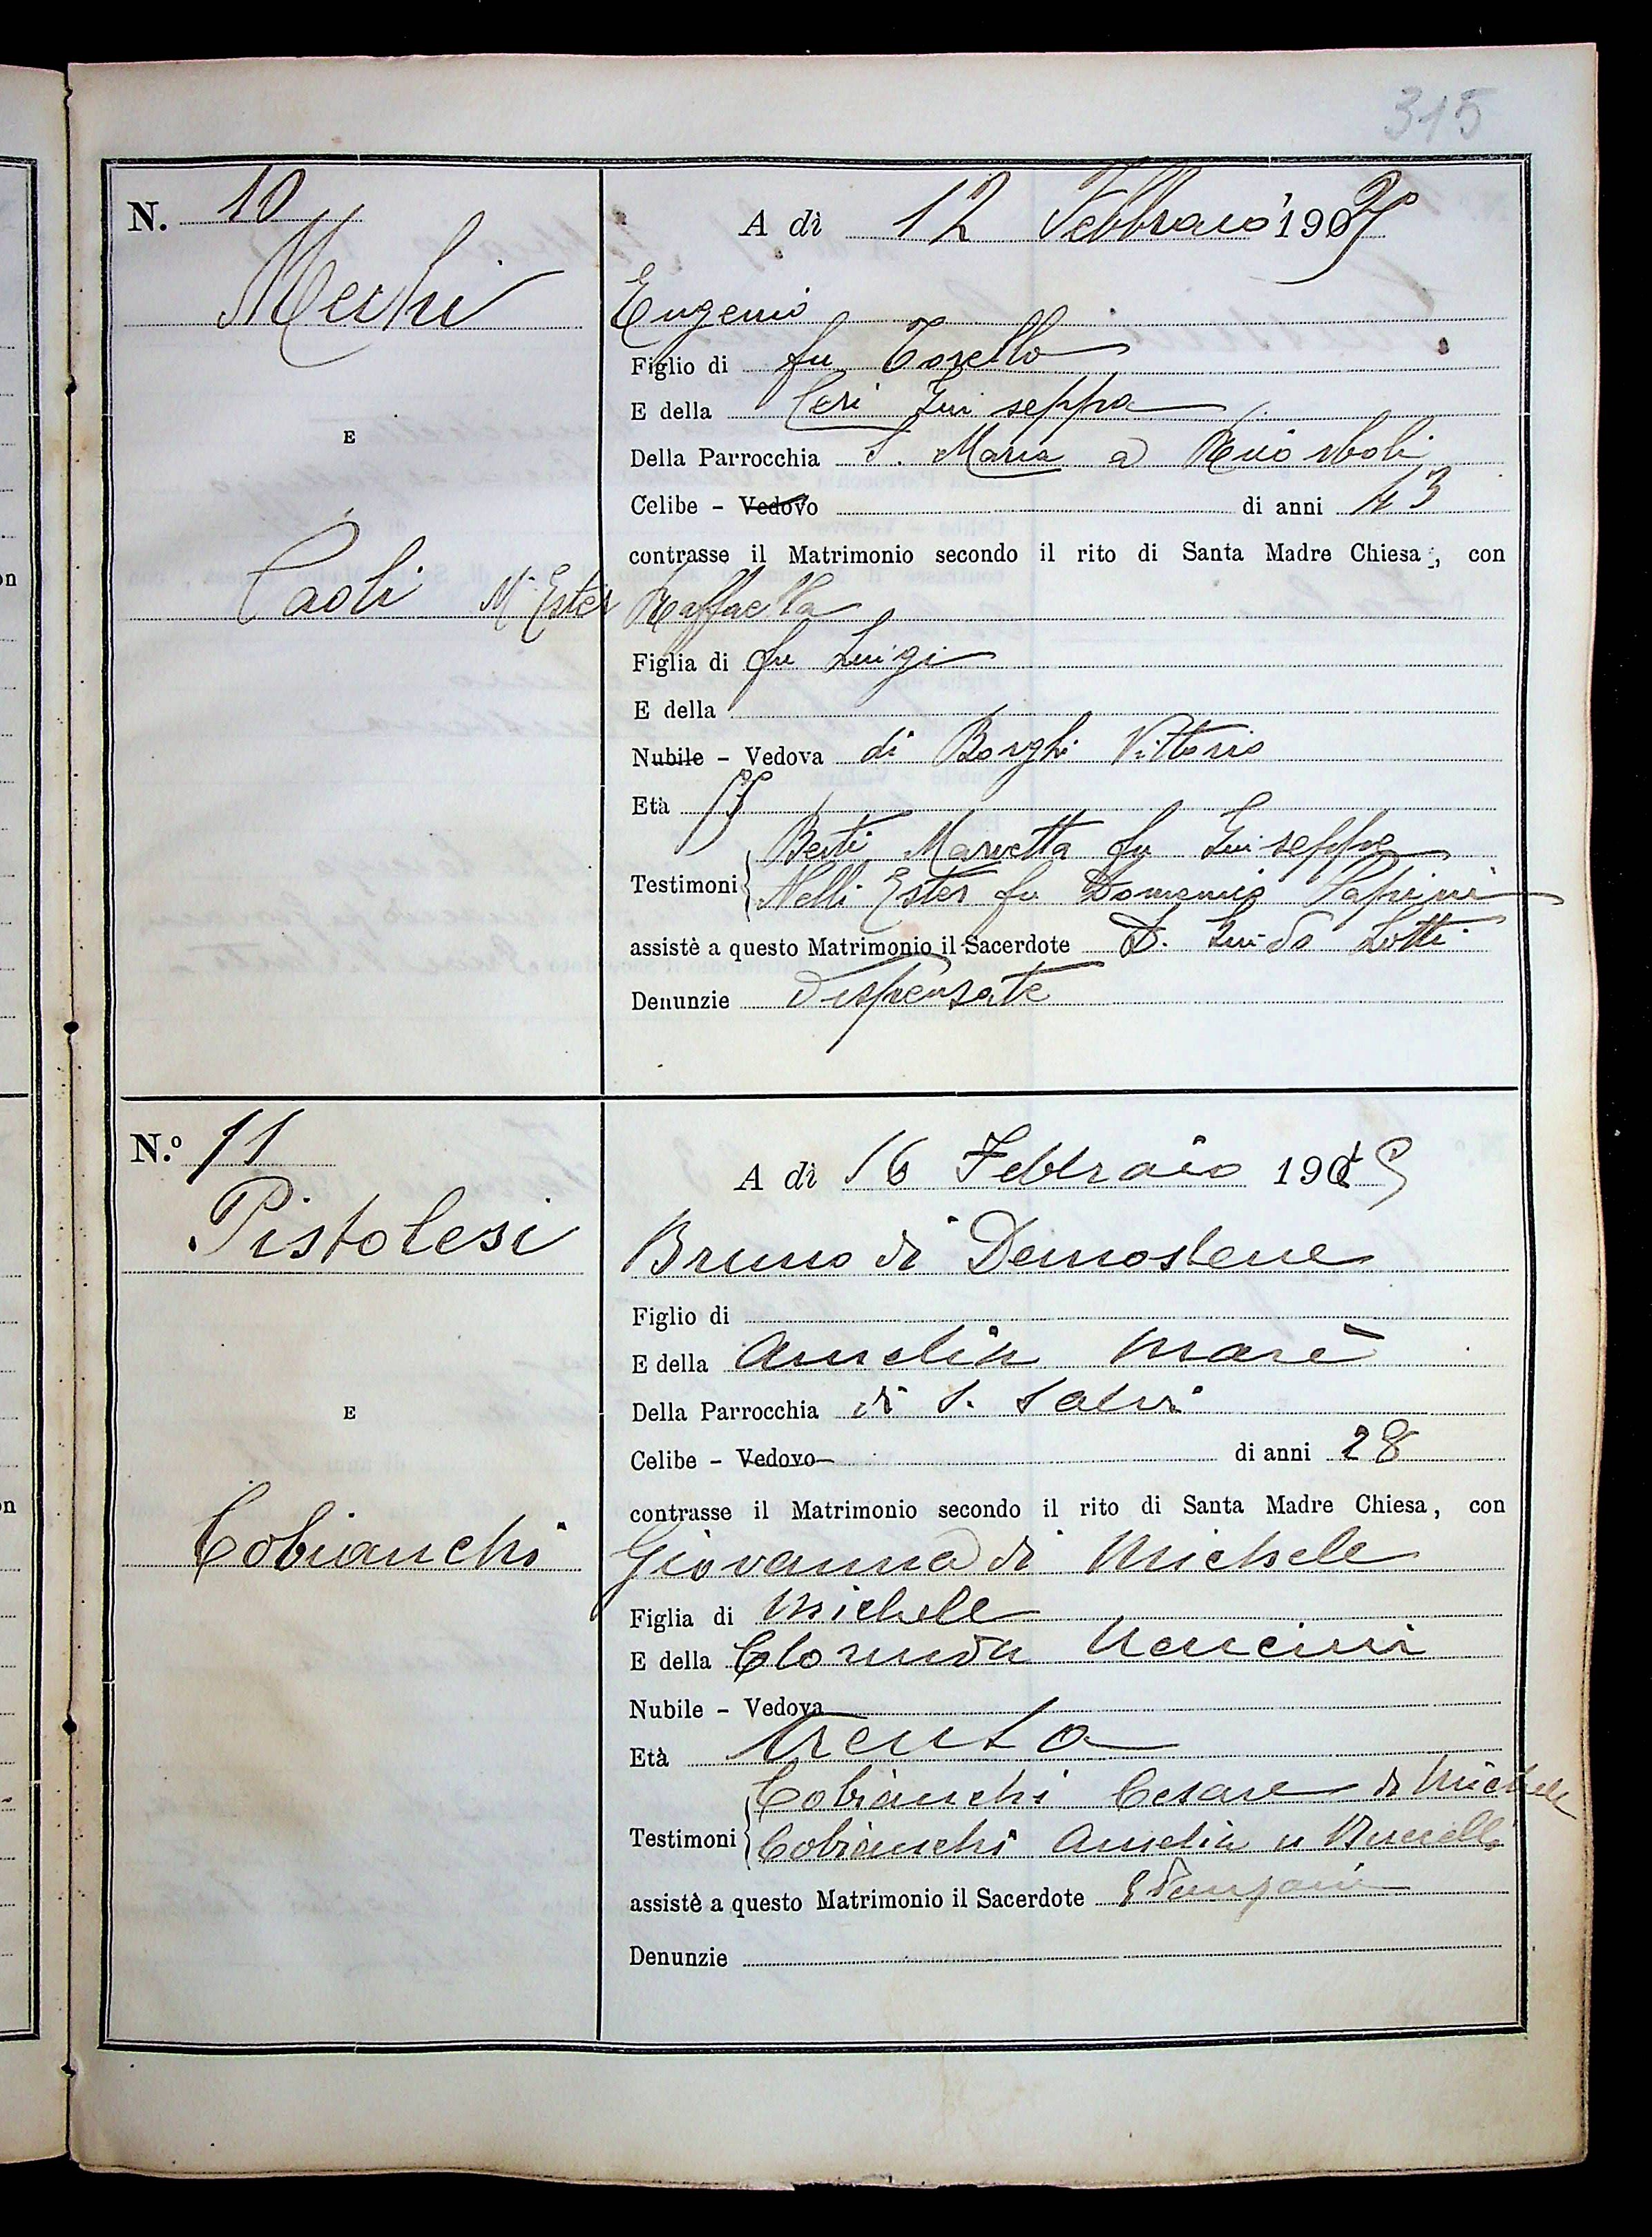 315
N. 10
A dì 12 Febbraio 190
Meshi
Eugenio
Figlio di fu Torello
E della Ceri Giuseppa
E
Della Parrocchia S. Maria a
Celibe - Vedovo di anni 43
contrasse il Matrimonio secondo il rito di Santa Madre Chiesa, con
Paoli M. Ester Raffaella
Figlia di fu Luigi
E della
Nubile - Vedova di Borghi Vittorio
Età
Berti Marietta fu Giuseppe
Testimoni Nelli Ester fu Domenico Papini
assistè a questo Matrimonio il Sacerdote D. Guido Lotti
Denunzie dispensate
N.º 11
A dì 16 Febbraio 190
Pistolesi
Bruno di Demostene
Figlio di
E della Amelia Marè
E
Della Parrocchia di S. Salvi
Celibe - Vedovo di anni 28
contrasse il Matrimonio secondo il rito di Santa Madre Chiesa, con
Cobianchi Giovanna di Michele
Figlia di Michele
E della Clorinda Nencini
Nubile - Vedova
Età trenta
Cobianchi Cesare di Michele
Testimoni Cobianchi Amelia
assistè a questo Matrimonio il Sacerdote
Denunzie